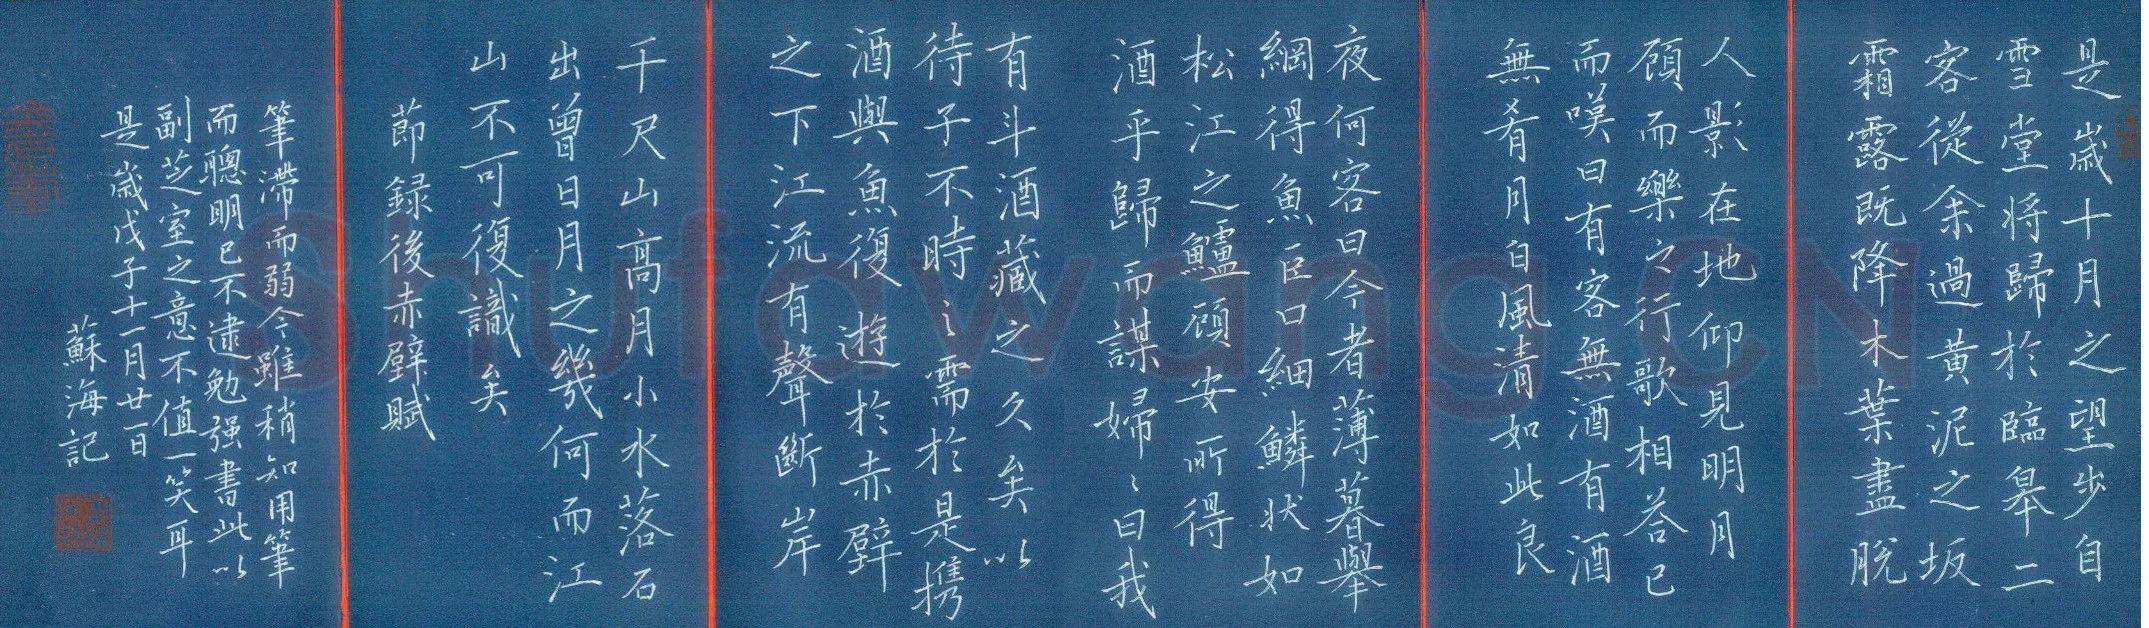 是歲十月之望步自
雪堂將歸於臨皋二
客從余過黃泥之坂
霜露既降木葉盡脫
人影在地仰見明月
顧而樂之行歌相答已
而嘆曰有客無酒有酒
無肴月白風清如此良
夜何客曰今者薄暮舉
網得魚巨口細鱗狀如
松江之鱸顧安所得
酒乎歸而謀婦〻曰我
有斗酒藏之久矣以
待子不時之需於是攜
酒與魚復遊於赤壁
之下江流有聲斷岸
千尺山高月小水落石
出曾日月之幾何而江
山不可復識矣
節録後赤壁賦
筆滯而弱今雖稍知用筆
而聰明已不逮勉强書此以
副芝室之意不值一笑耳
是歲戊子十一月廿一日
蘇海記
Shufawang.CN